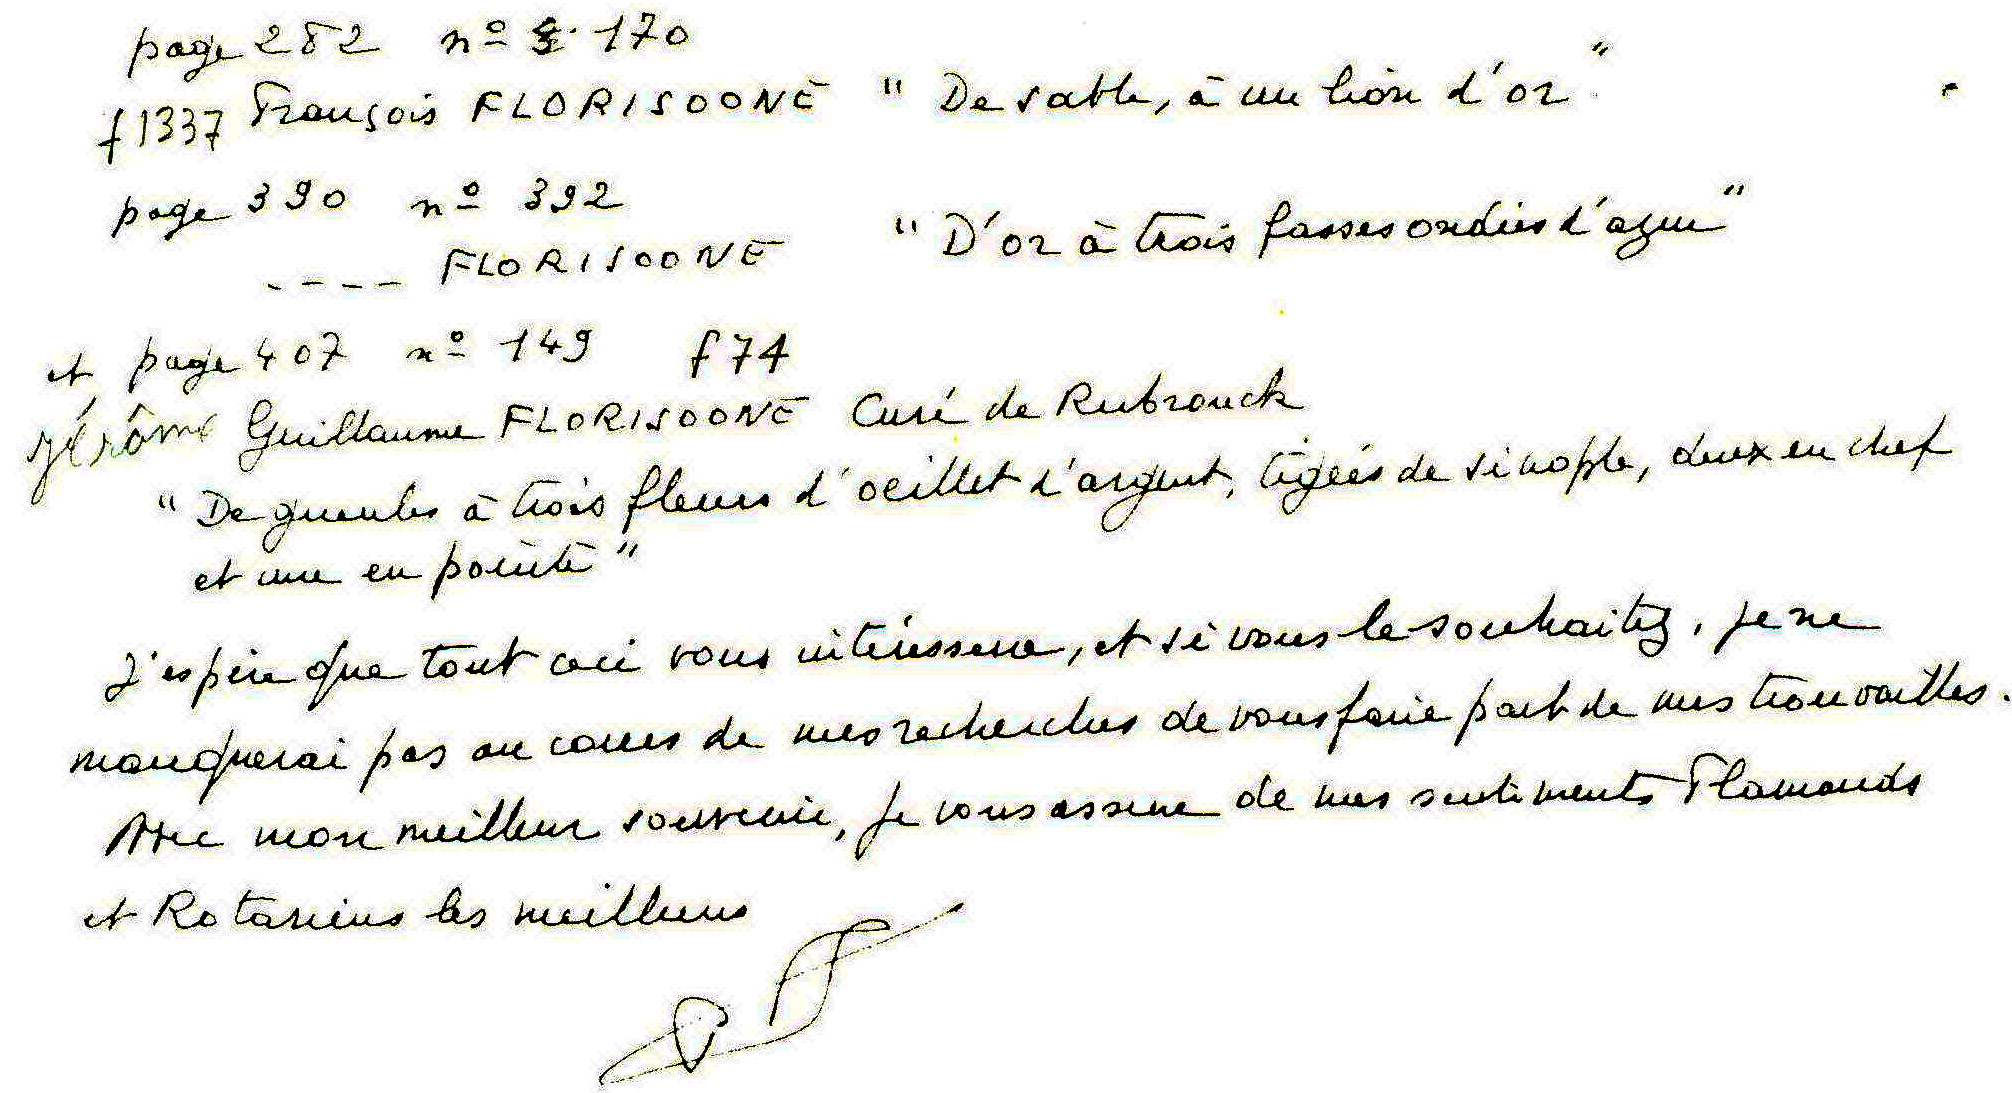 page 282 nº 170
f 1337 François FLORISOONE "De sable, à un lion d'or"
page 390 nº 392
---- FLORISOONE "D'or à trois fasses ondées d'azur"
et page 407 nº 149 f 74
Jérôme Guillaume FLORISOONE Curé de Rubrouck
"De gueules à trois fleurs d'oeillet d'argent, tigées de sinople, deux en chef
et une en pointe"
J'espère que tout ceci vous intéressera, et si vous le souhaitez, je ne
manquerai pas au cours de mes recherches de vous faire part de mes trouvailles.
Avec mon meilleur souvenir, je vous assure de mes sentiments Flamands
et Rotariens les meilleurs